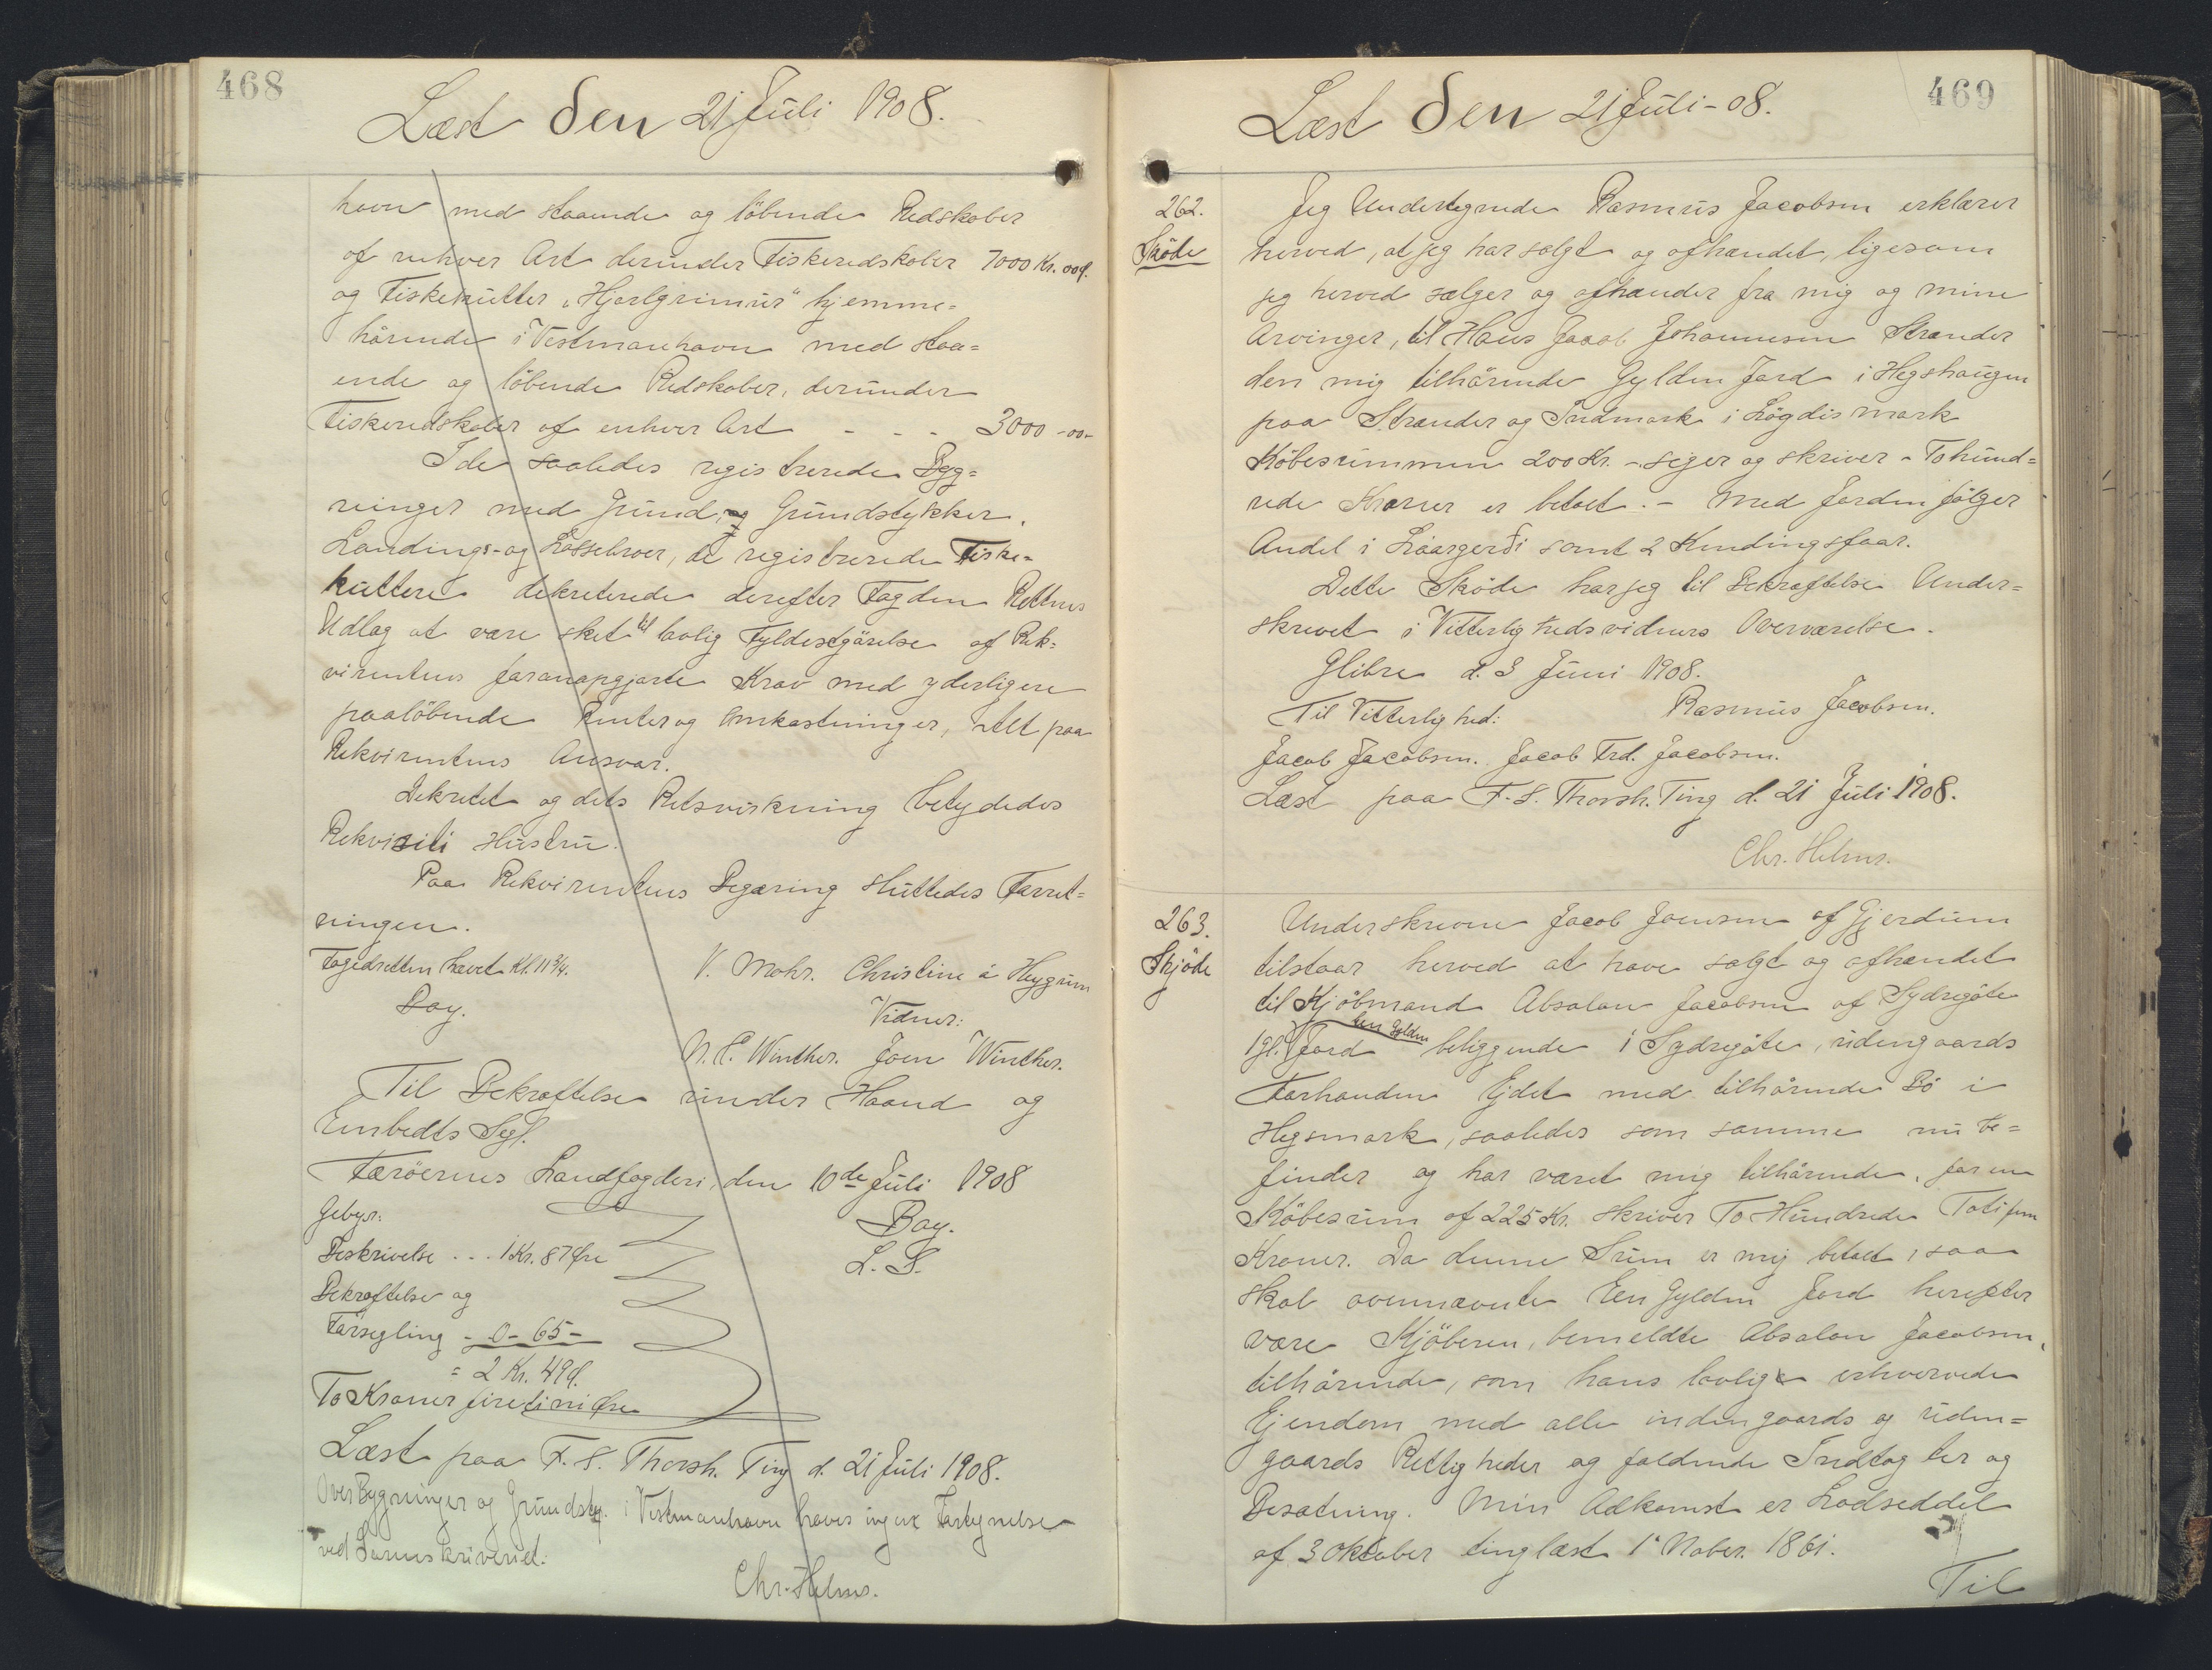 468
Læst den 21 Juli 1908.
havn med staaende og løbende Redskaber
af enhver Art derunder Fiskeredskaber 7000 Kr. 00 Ø.
og Fiskekutter "Hjorlgrimur" hjemme=
hörende i Vestmanhavn med staa=
ende og löbende Redskaber, derunder
Fiskeredskaber af enhver Art - - - 3000 -00-
I de saaledes registrerede Byg=
ninger med Grund, og Grundstykker,
Landings- og Lossebroer, de registrerede Fiske-
kuttere dekreterede derefter Fogden Rettens
Udlæg at være sket til lovlig Fyldestgörelse af Rek=
virentens foranopgjorte Krav med yderligere
paalöbende Renter og Omkostninger, Alt paa
Rekvirentens Ansvar.
Dekretet og dets Retsvirkning betydedes
Rekvisiti Hustru.
Paa Rekvirentens Begæring sluttedes Forret=
ningen.
Fogedretten hævet Kl. 11 3/4.
V. Mohr. Christine á Heygum
Bay.
Vidner:
N. C. Winther. Joen Winther.
Til Bekræftelse under Haand og
Embedts Segl.
Færöernes Landfogderi, den 10de Juli 1908
Gebyr:
Bay.
Beskrivelse . . . 1 Kr. 87 Øre
L. S.
Bekræftelse og
Forsegling - 0 - 65 -
= 2 Kr. 49 Ø.
To Kroner firetini Øre
Læst paa F. S. Thorsh. Ting d. 21 Juli 1908.
Over Bygninger og Grundstk. i Vestmanhavn haves ingen Hjemmelse
ved Sorenskriveriet.
Chr. Helms.
469
Læst den 21 Juli - 08.
262.
Sköde
Jeg Undertegnede Rasmus Jacobsen erklærer
herved, at jeg har solgt og afhændet, ligesom
jeg herved sælger og afhænder fra mig og mine
Arvinger, til Hans Jacob Johannesen Strænder
den mig tilhörende Gylden Jord i Hegshaugen
paa Strænder og Indmark i Lögdismark
Köbesummen 200 Kr. - siger og skriver - Tohund=
rede Kroner er betalt. - Med Jorden fölger
Andel i Lóargerði samt 2 Kendingsfaar.
Dette Sköde har jeg til Bekræftelse Under=
skrevet i Vitterlighedsvidners Overværelse.
Glibre d. 3 Juni 1908.
Til Vitterlighed:
Rasmus Jacobsen.
Jacob Jacobsen. Jacob Frd. Jacobsen.
Læst paa F. S. Thorsh. Ting d. 21 Juli 1908.
Chr. Helms.
263.
Skjöde
Underskrevne Jacob Joensen af Gjerdum
tilstaar herved at have solgt og afhændet
til Kjöbmand Absalon Jacobsen af Sydregöte
1 gl. (een Gylden) Jord beliggende i Sydregöte, udengaards
Forhanden Ejdet med tilhörende Bö i
Hegsmark, saaledes som samme nu be=
findes og har været mig tilhörende, for en
Köbesum af 225 Kr. skriver To Hundrede Totifem
Kroner. Da denne Sum er mig betalt, saa
skal ovennævnte Een Gylden Jord herefter
være Kjöberen, bemeldte Absalon Jacobsen,
tilhörende, som hans lovlige erhvervede
Ejendom med alle indengaards og uden=
gaards Rettigheder og faldende Indtægter og
Besætning. Min Adkomst er Lodseddel
af 3 Oktober tinglæst 1' Nober. 1861.
Til